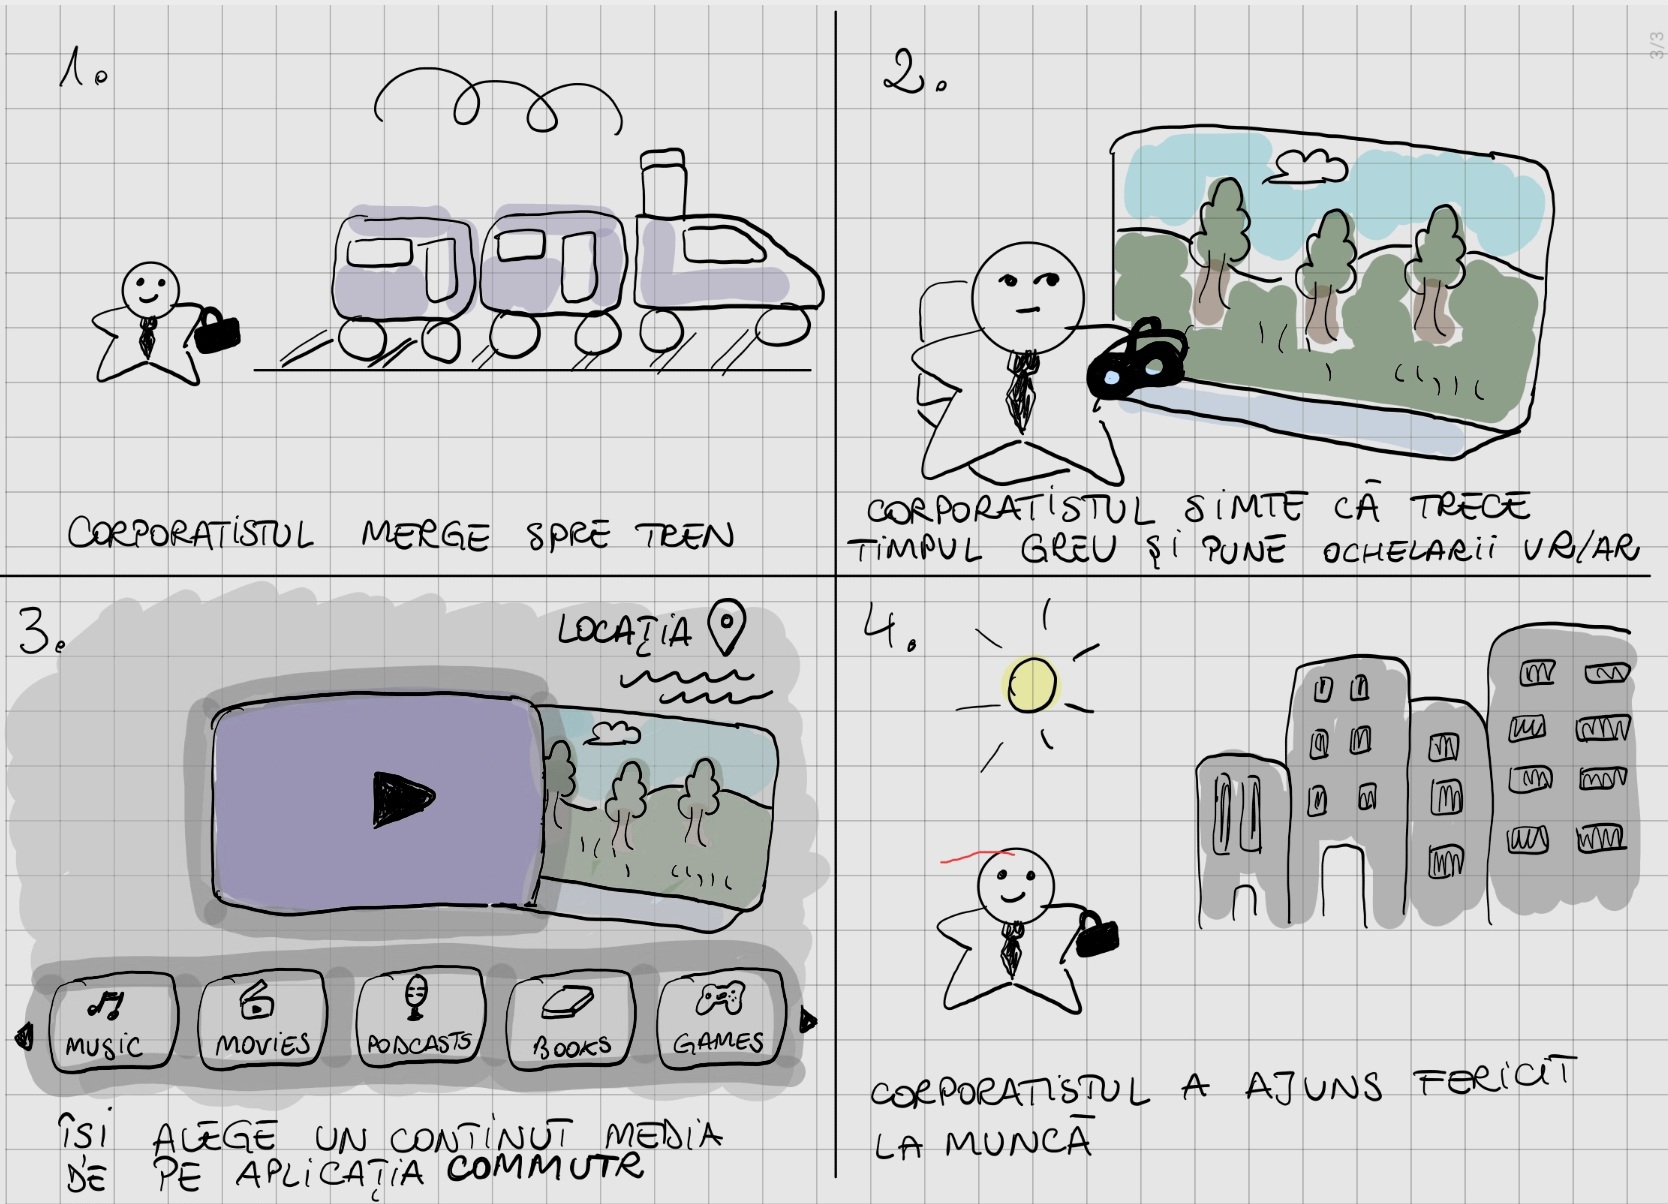 1.
CORPORATISTUL MERGE SPRE TREN
2.
CORPORATISTUL SIMTE CĂ TRECE
TIMPUL GREU ŞI PUNE OCHELARII VR/AR
3/3
3.
LOCAŢIA
MUSIC
MOVIES
PODCASTS
BOOKS
GAMES
ÎSI ALEGE UN CONTINUT MEDIA
DE PE APLICAŢIA COMMUTR
4.
CORPORATISTUL A AJUNS FERICIT
LA MUNCĂ